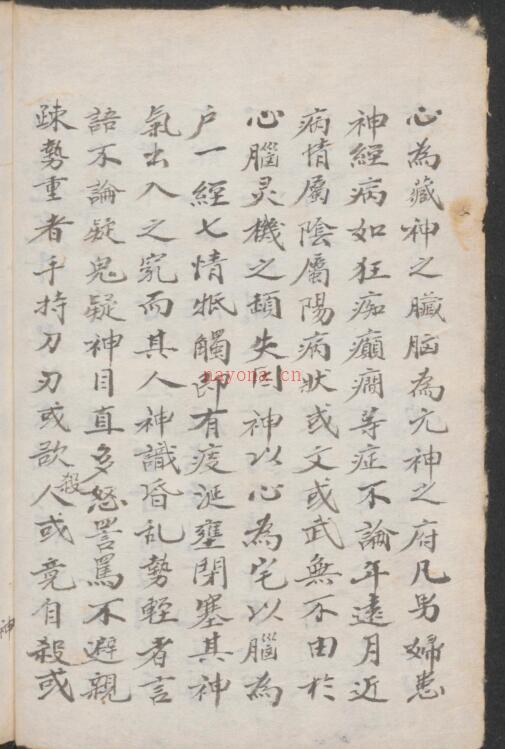 心為藏神之臟腦為元神之府凡男婦患
神經病如狂痴癲癇等症不論年遠月近
病情屬陰屬陽病狀或文或武無不由於
心腦灵機之頓失因神以心為宅以腦為
户一經七情牴觸即有痰涎壅閉塞其神
氣出入之竅而其人神識昏乱勢輕者言
語不論疑鬼疑神目直多怒詈罵不避親
疎勢重者手持刀刃或欲殺人或竟自殺或
神
nayona.cn